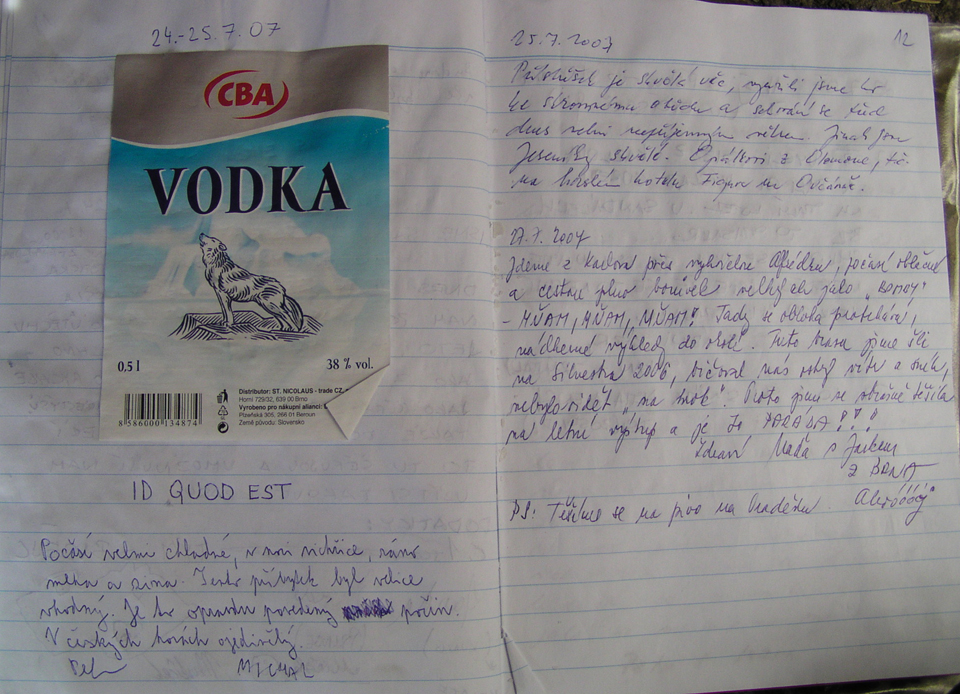 24.-25.7.07
CBA
VODKA
0.5 l
38 % vol.
Distributor: ST. NICOLAUS - trade CZ,
Horní 729/32, 639 00 Brno
Vyrobeno pro nákupní alianci
Plzeňská 305, 266 01 Beroun
Země původu: Slovensko
8 586000 134874
ID QUOD EST
Počasí velmi chladné, v noci vichřice, ráno
mlha a zima. Tento příbytek byl velice
vhodný. Je to opravdu povedený počin.
V českých horách ojedinělý.
MICHAL
25.7.2007
12
Přístřešek je skvělá věc, využili jsme ho
ke skromnému obědu a schování se před
dnes velmi nepříjemným větrem. Jinak jsou
Jeseníky skvělé. z Olomouce,
na hotelu Figura na Ovčárně.
27.7.2007
Jdeme z Karlova přes vyhlídku Alfrédku, počasí oblačné
a cestou plno borůvek velkých jako "BOMBY"
- MŇAM, MŇAM, MŇAM! Tady se obloha protrhává,
nádherné výhledy do okolí. Tuto trasu jsme šli
na Silvestra 2006, bičoval nás vítr a sníh,
nebylo vidět "na krok". Proto jsme se strašně těšili
na letní výstup a je to PARÁDA!!!
Zdraví Naďa s Jarkem
z BRNA
PS: Těšíme se na pivo na Pradědu. Ahoóóój